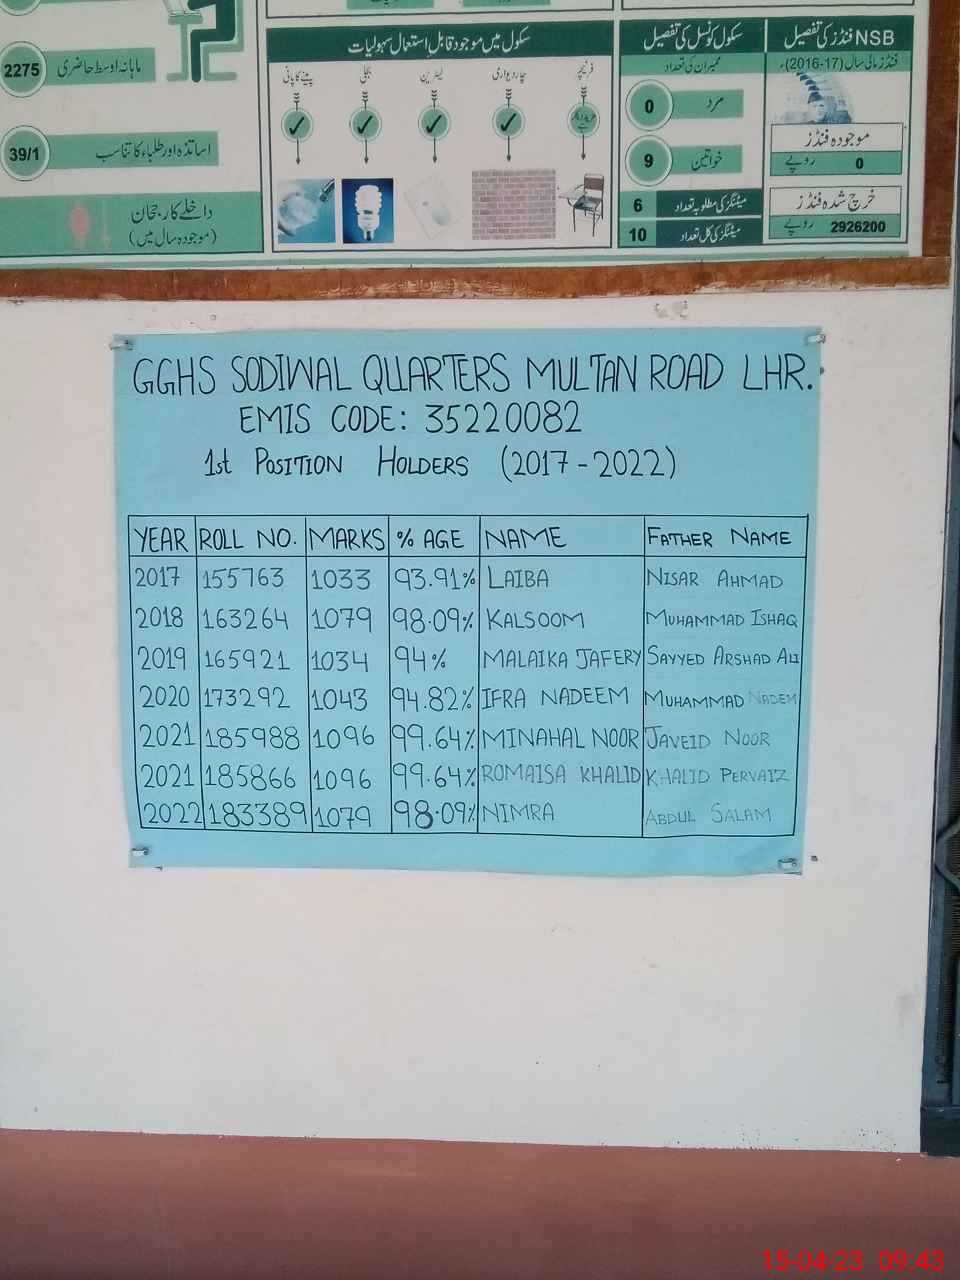 2275
ماہانہ اوسط حاضری
39/1
اساتذہ اور طلباء کا تناسب
داخلے کا رجحان
(موجودہ سال میں)
سکول میں موجود قابل استعمال سہولیات
پینے کا پانی بجلی لیٹرین چار دیواری فرنیچر
سکول کونسل کی تفصیل
ممبران کی تعداد
0 مرد
9 خواتین
6 میٹنگز کی مطلوبہ تعداد
10 میٹنگز کی کل تعداد
NSB فنڈز کی تفصیل
فنڈز مالی سال (2016-17)ء
موجودہ فنڈز
0 روپے
خرچ شدہ فنڈز
2926200 روپے
GGHS SODIWAL QUARTERS MULTAN ROAD LHR.
EMIS CODE: 35220082
1st POSITION HOLDERS (2017-2022)
YEAR ROLL NO. MARKS % AGE NAME FATHER NAME
2017 155763 1033 93.91% LAIBA NISAR AHMAD
2018 163264 1079 98.09% KALSOOM MUHAMMAD ISHAQ
2019 165921 1034 94% MALAIKA JAFERY SAYYED ARSHAD ALI
2020 173292 1043 94.82% IFRA NADEEM MUHAMMAD NADEM
2021 185988 1096 99.64% MINAHAL NOOR JAVEID NOOR
2021 185866 1096 99.64% ROMAISA KHALID KHALID PERVAIZ
2022 183389 1079 98.09% NIMRA ABDUL SALAM
15-04-23 09:43